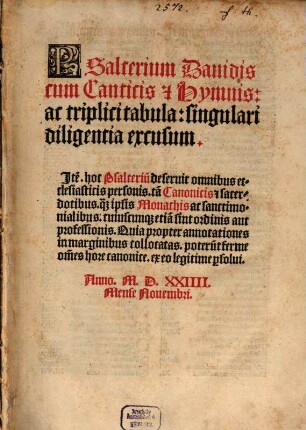 2572. f th.
PSalterium Dauidis
cum Canticis ⁊ Hymnis:
ac triplici tabula: singulari
diligentia excusum.
Itē. hoc Psalteriū deseruit omnibus ec-
clesiasticis personis. tā Canonicis ⁊ sacer-
dotibus. q̄ʒ ipsis Monachis ac sanctimo-
nialibus. cuiuscunqʒ etiā sint ordinis aut
professionis. Quia propter annotationes
in marginibus collocatas. poterūt ferme
om̄es hore canonice. ex eo legitime ꝑsolui.
Anno. M. D. XXIIII.
Mense Nouembri.